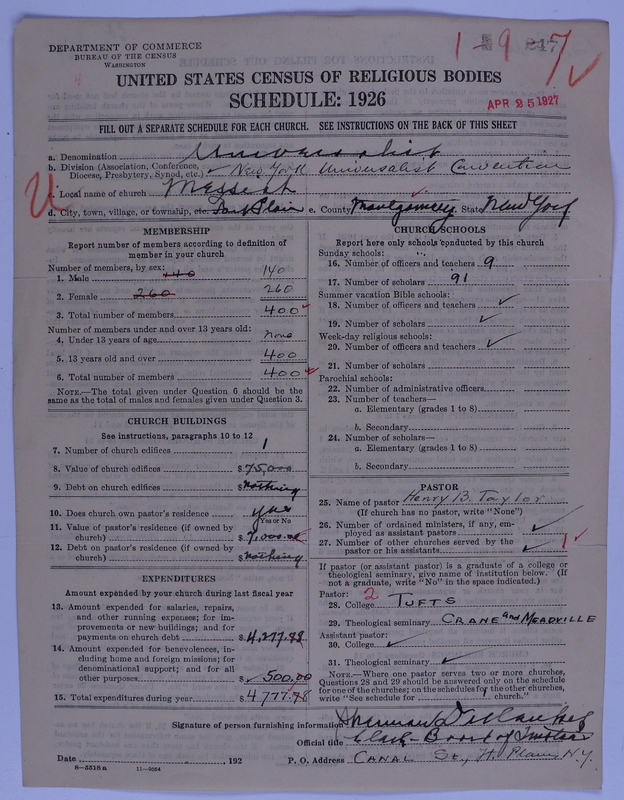 1-9-7
247
DEPARTMENT OF COMMERCE
BUREAU OF THE CENSUS
WASHINGTON
UNITED STATES CENSUS OF RELIGIOUS BODIES
SCHEDULE: 1926
APR 25 1927
FILL OUT A SEPARATE SCHEDULE FOR EACH CHURCH. SEE INSTRUCTIONS ON THE BACK OF THIS SHEET
a. Denomination Universalist
b. Division (Association, Conference, Diocese, Presbytery, Synod, etc.) New York Universalist Convention
U
c. Local name of church Messiah
d. City, town, village, or township, etc. Fort Plain e. County Montgomery State New York
MEMBERSHIP
Report number of members according to definition of member in your church
Number of members, by sex:
1. Male 140 140
2. Female 260 260
3. Total number of members 400
Number of members under and over 13 years old:
4. Under 13 years of age None
5. 13 years old and over 400
6. Total number of members 400
NOTE.—The total given under Question 6 should be the same as the total of males and females given under Question 3.
CHURCH BUILDINGS
See instructions, paragraphs 10 to 12
7. Number of church edifices 1
8. Value of church edifices $75,000
9. Debt on church edifices $Nothing
10. Does church own pastor's residence yes
Yes or No
11. Value of pastor's residence (if owned by church) $7,000.00
12. Debt on pastor's residence (if owned by church) $Nothing
EXPENDITURES
Amount expended by your church during last fiscal year
13. Amount expended for salaries, repairs, and other running expenses; for improvements or new buildings; and for payments on church debt $4,277.98
14. Amount expended for benevolences, including home and foreign missions; for denominational support; and for all other purposes $500.00
15. Total expenditures during year $4777.98
CHURCH SCHOOLS
Report here only schools conducted by this church
Sunday schools:
16. Number of officers and teachers 9
17. Number of scholars 91
Summer vacation Bible schools:
18. Number of officers and teachers
19. Number of scholars
Week-day religious schools:
20. Number of officers and teachers
21. Number of scholars
Parochial schools:
22. Number of administrative officers
23. Number of teachers—
a. Elementary (grades 1 to 8)
b. Secondary
24. Number of scholars—
a. Elementary (grades 1 to 8)
b. Secondary
PASTOR
25. Name of pastor Henry B. Taylor
(If church has no pastor, write "None")
26. Number of ordained ministers, if any, employed as assistant pastors
27. Number of other churches served by the pastor or his assistants 1
If pastor (or assistant pastor) is a graduate of a college or theological seminary, give name of institution below. (If not a graduate, write "No" in the space indicated.)
Pastor: 2
28. College TUFTS
29. Theological seminary CRANE and MEADVILLE
Assistant pastor:
30. College
31. Theological seminary
NOTE.—Where one pastor serves two or more churches, Questions 28 and 29 should be answered only on the schedule for one of the churches; on the schedules for the other churches, write "See schedule for church."
Signature of person furnishing information
Official title Clerk - Board of Trustees
Date , 192 P. O. Address CANAL St, Ft. Plain, N.Y.
8-5518 a 11-9054